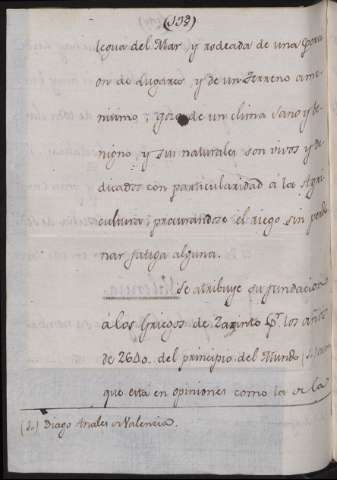 (138)
legua del Mar, y rodeada de una porci-
on de Lugares, y de un Terreno ame-
nisimo; goza de un clima sano y be-
nigno, y sus naturales son vivos y de-
dicados con particularidad á la Agri-
cultura; procurandose el riego sin perdo-
nar fatiga alguna.
Se atribuye su fundacion
á los Griegos de Zazinto pr. los años
de 2640. del principio del Mundo (1.)
que esta en opiniones como la de la
(1.) Diago Anales de Valencia.